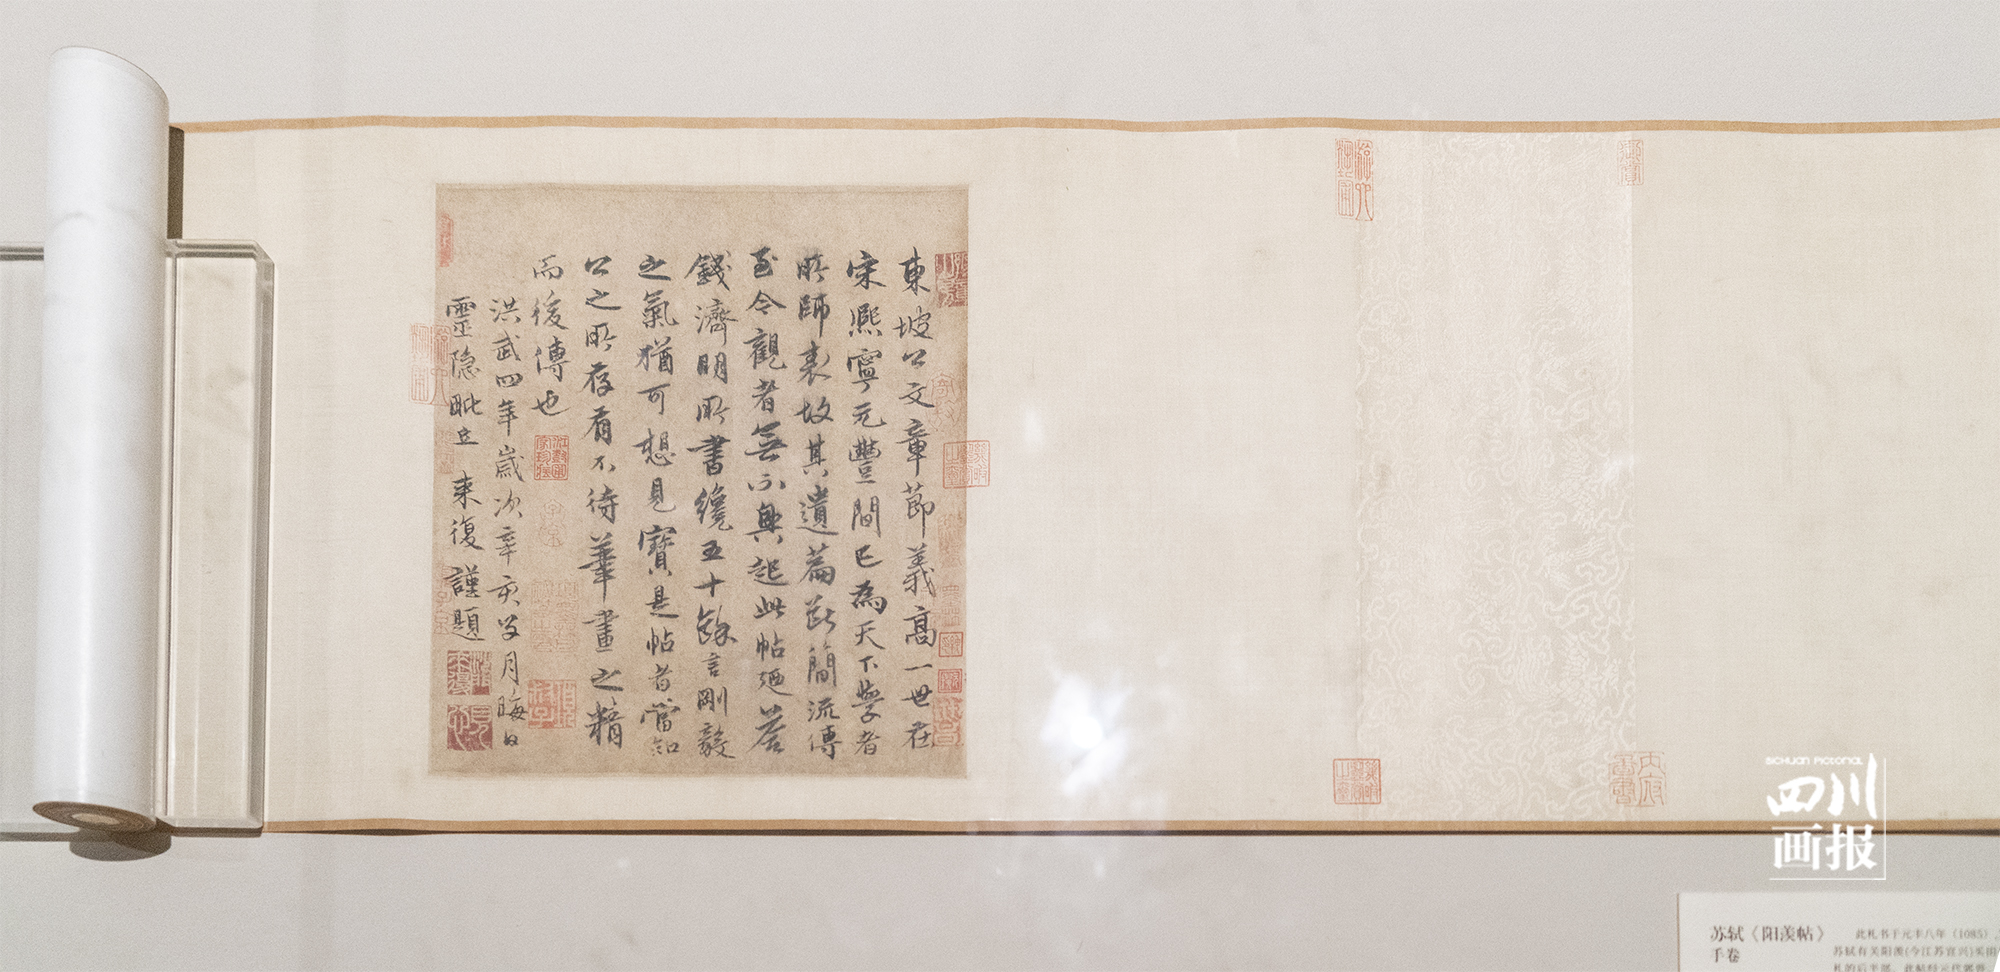 東坡公文章節義高一世在
宋熙寧元豐間已為天下學者
所師表故其遺篇斷簡流傳
至今觀者無不興起此帖廼答
錢濟明所書纔五十餘言剛毅
之氣猶可想見寶是帖者當知
公之所存有不待筆畫之精
而後傳也
洪武四年歲次辛亥
月晦日
靈隱
来復謹題
SICHUAN PICTORIAL
四川
画报
苏轼《阳羡帖》
手卷
此札书于元丰八年（1085）
苏轼有关阳羡(今江苏宜兴)买田
札的后半部